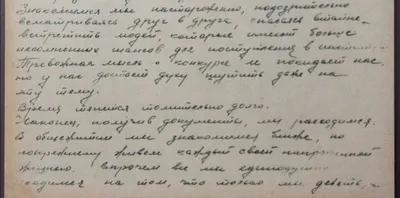 Знакомимся мы настороженно, подозрительно
всматриваясь друг в друга, опасаясь
встретить людей, которые имеют больше
шансов для поступления в институт.
Тревожная мысль о конкурсе не покидает нас,
но у нас достает духу шутить даже на
эту тему.
Время тянется томительно долго.
Наконец, получив документы, мы расходимся.
В общежитии мы знакомимся ближе, но
попрежнему живем каждый своей напряженной
жизнью. Впрочем все мы единодушно
сходимся на том, что только мы девять,